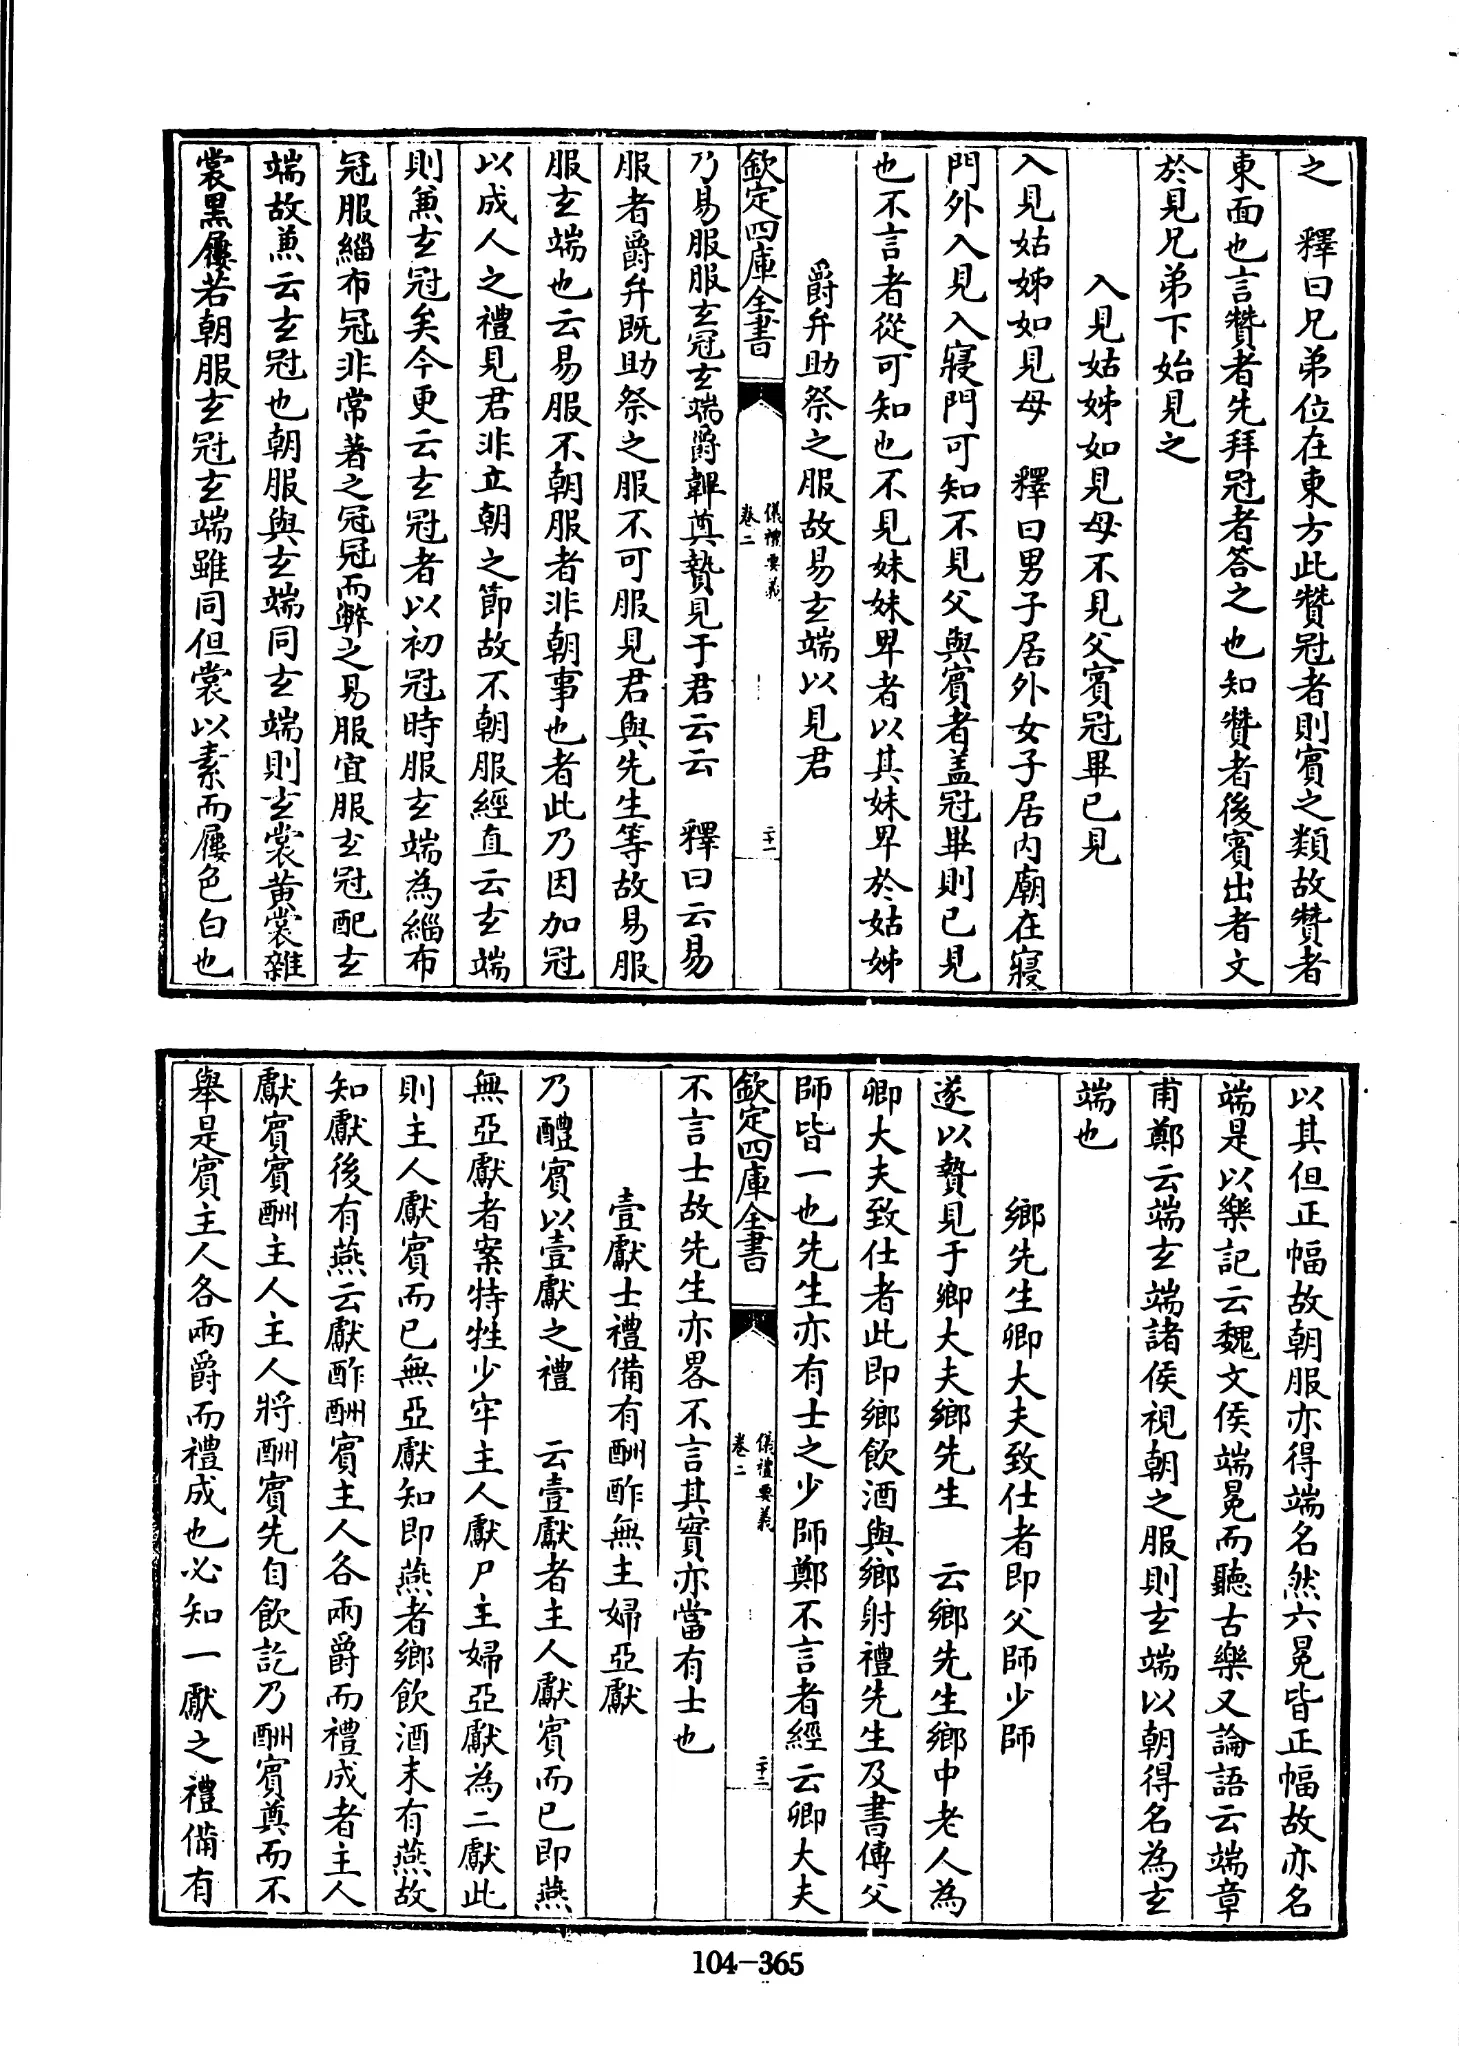 之　釋曰兄弟位在東方此贊冠者則賓之類故贊者
東面也言贊者先拜冠者答之也知贊者後賓出者文
於見兄弟下始見之
入見姑姊如見母不見父賓冠畢已見
入見姑姊如見母　釋曰男子居外女子居内廟在寢
門外入見入寢門可知不見父與賓者盖冠畢則已見
也不言者從可知也不見妹妹卑者以其妹卑於姑姊
爵弁助祭之服故易玄端以見君
欽定四庫全書
儀禮要義
卷二
二十一
乃易服服玄冠玄端爵韠奠贄見于君云云　釋曰云易
服者爵弁既助祭之服不可服見君與先生等故易服
服玄端也云易服不朝服者非朝事也者此乃因加冠
以成人之禮見君非正朝之節故不朝服經直云玄端
則兼玄冠矣今更云玄冠者以初冠時服玄端為緇布
冠服緇布冠非常著之冠冠而弊之易服宜服玄冠配玄
端故兼云玄冠也朝服與玄端同玄端則玄裳黄裳雜
裳黑屨若朝服玄冠玄端雖同但裳以素而屨色白也
以其但正幅故朝服亦得端名然六冕皆正幅故亦名
端是以樂記云魏文侯端冕而聽古樂又論語云端章
甫鄭云端玄端諸侯視朝之服則玄端以朝得名為玄
端也
鄉先生卿大夫致仕者即父師少師
遂以贄見于卿大夫鄉先生　云鄉先生鄉中老人為
卿大夫致仕者此即鄉飲酒與鄉射禮先生及書傳父
師皆一也先生亦有士之少師鄭不言者經云卿大夫
欽定四庫全書
儀禮要義
卷二
二十二
不言士故先生亦畧不言其實亦當有士也
壹獻士禮備有酬酢無主婦亞獻
乃醴賓以壹獻之禮　云壹獻者主人獻賓而已即燕
無亞獻者案特牲少牢主人獻尸主婦亞獻為二獻此
則主人獻賓而已無亞獻知即燕者鄉飲酒末有燕故
知獻後有燕云獻酢酬賓主人各兩爵而禮成者主人
獻賓賓酬主人主人將酬賓先自飲訖乃酬賓奠而不
舉是賓主人各兩爵而禮成也必知一獻之禮備有
104-365